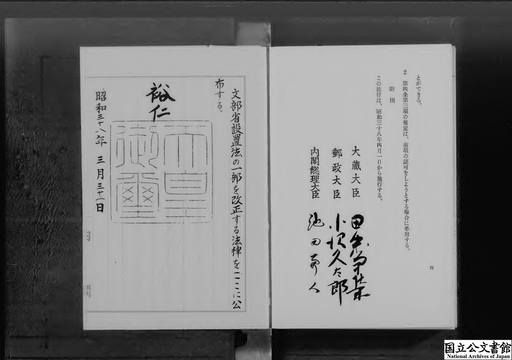 とができる。
2 第四条第三項の規定は、前項の認可をしようとする場合に準用する。
附則
この法律は、昭和三十八年四月一日から施行する。
大蔵大臣 田中角榮
郵政大臣 小沢久太郎
内閣総理大臣 池田勇人
文部省設置法の一部を改正する法律をここに公
布する。
裕仁
天皇御璽
昭和三十八年 三月 三十一日
国立公文書館
National Archives of Japan